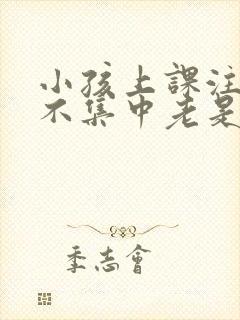 小孩上課注
不集中老是
季志會